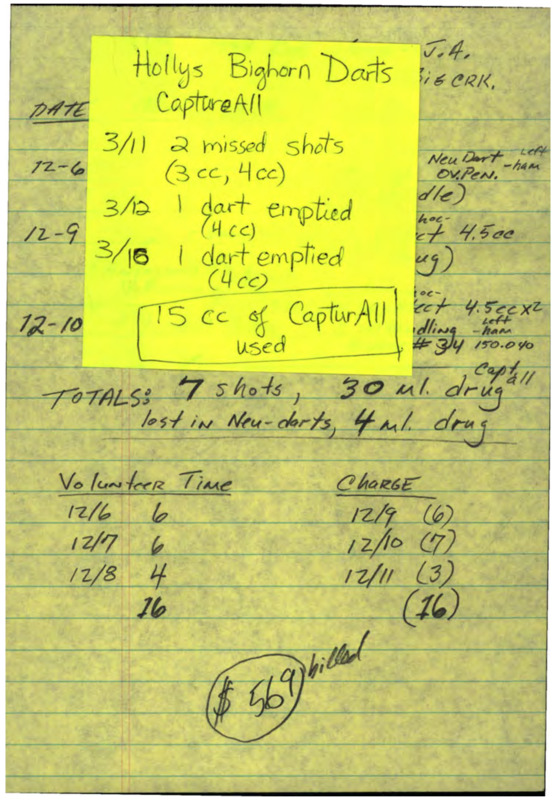 Hollys Bighorn Darts
CaptureAll
3/11 2 missed shots
(3 cc, 4cc)
3/12 1 dart emptied
(4cc)
3/16 1 dart emptied
(4cc)
15 cc of CapturAll
used
J.A.
Big CRK.
DATE
12-6 Neu Dart left
OV.PEN. -ham
dle)
12-9 hoc-
ct 4.5cc
ug)
12-10 oc-
ect 4.5cc x2
dling left -ham
# 34 150.040
TOTALS: 7 shots, 30 ml. drug Capt all
lost in Neu-darts, 4 ml. drug
Volunteer Time CHARGE
12/6 6 12/9 (6)
12/7 6 12/10 (7)
12/8 4 12/11 (3)
16 (16)
$ 569 billed